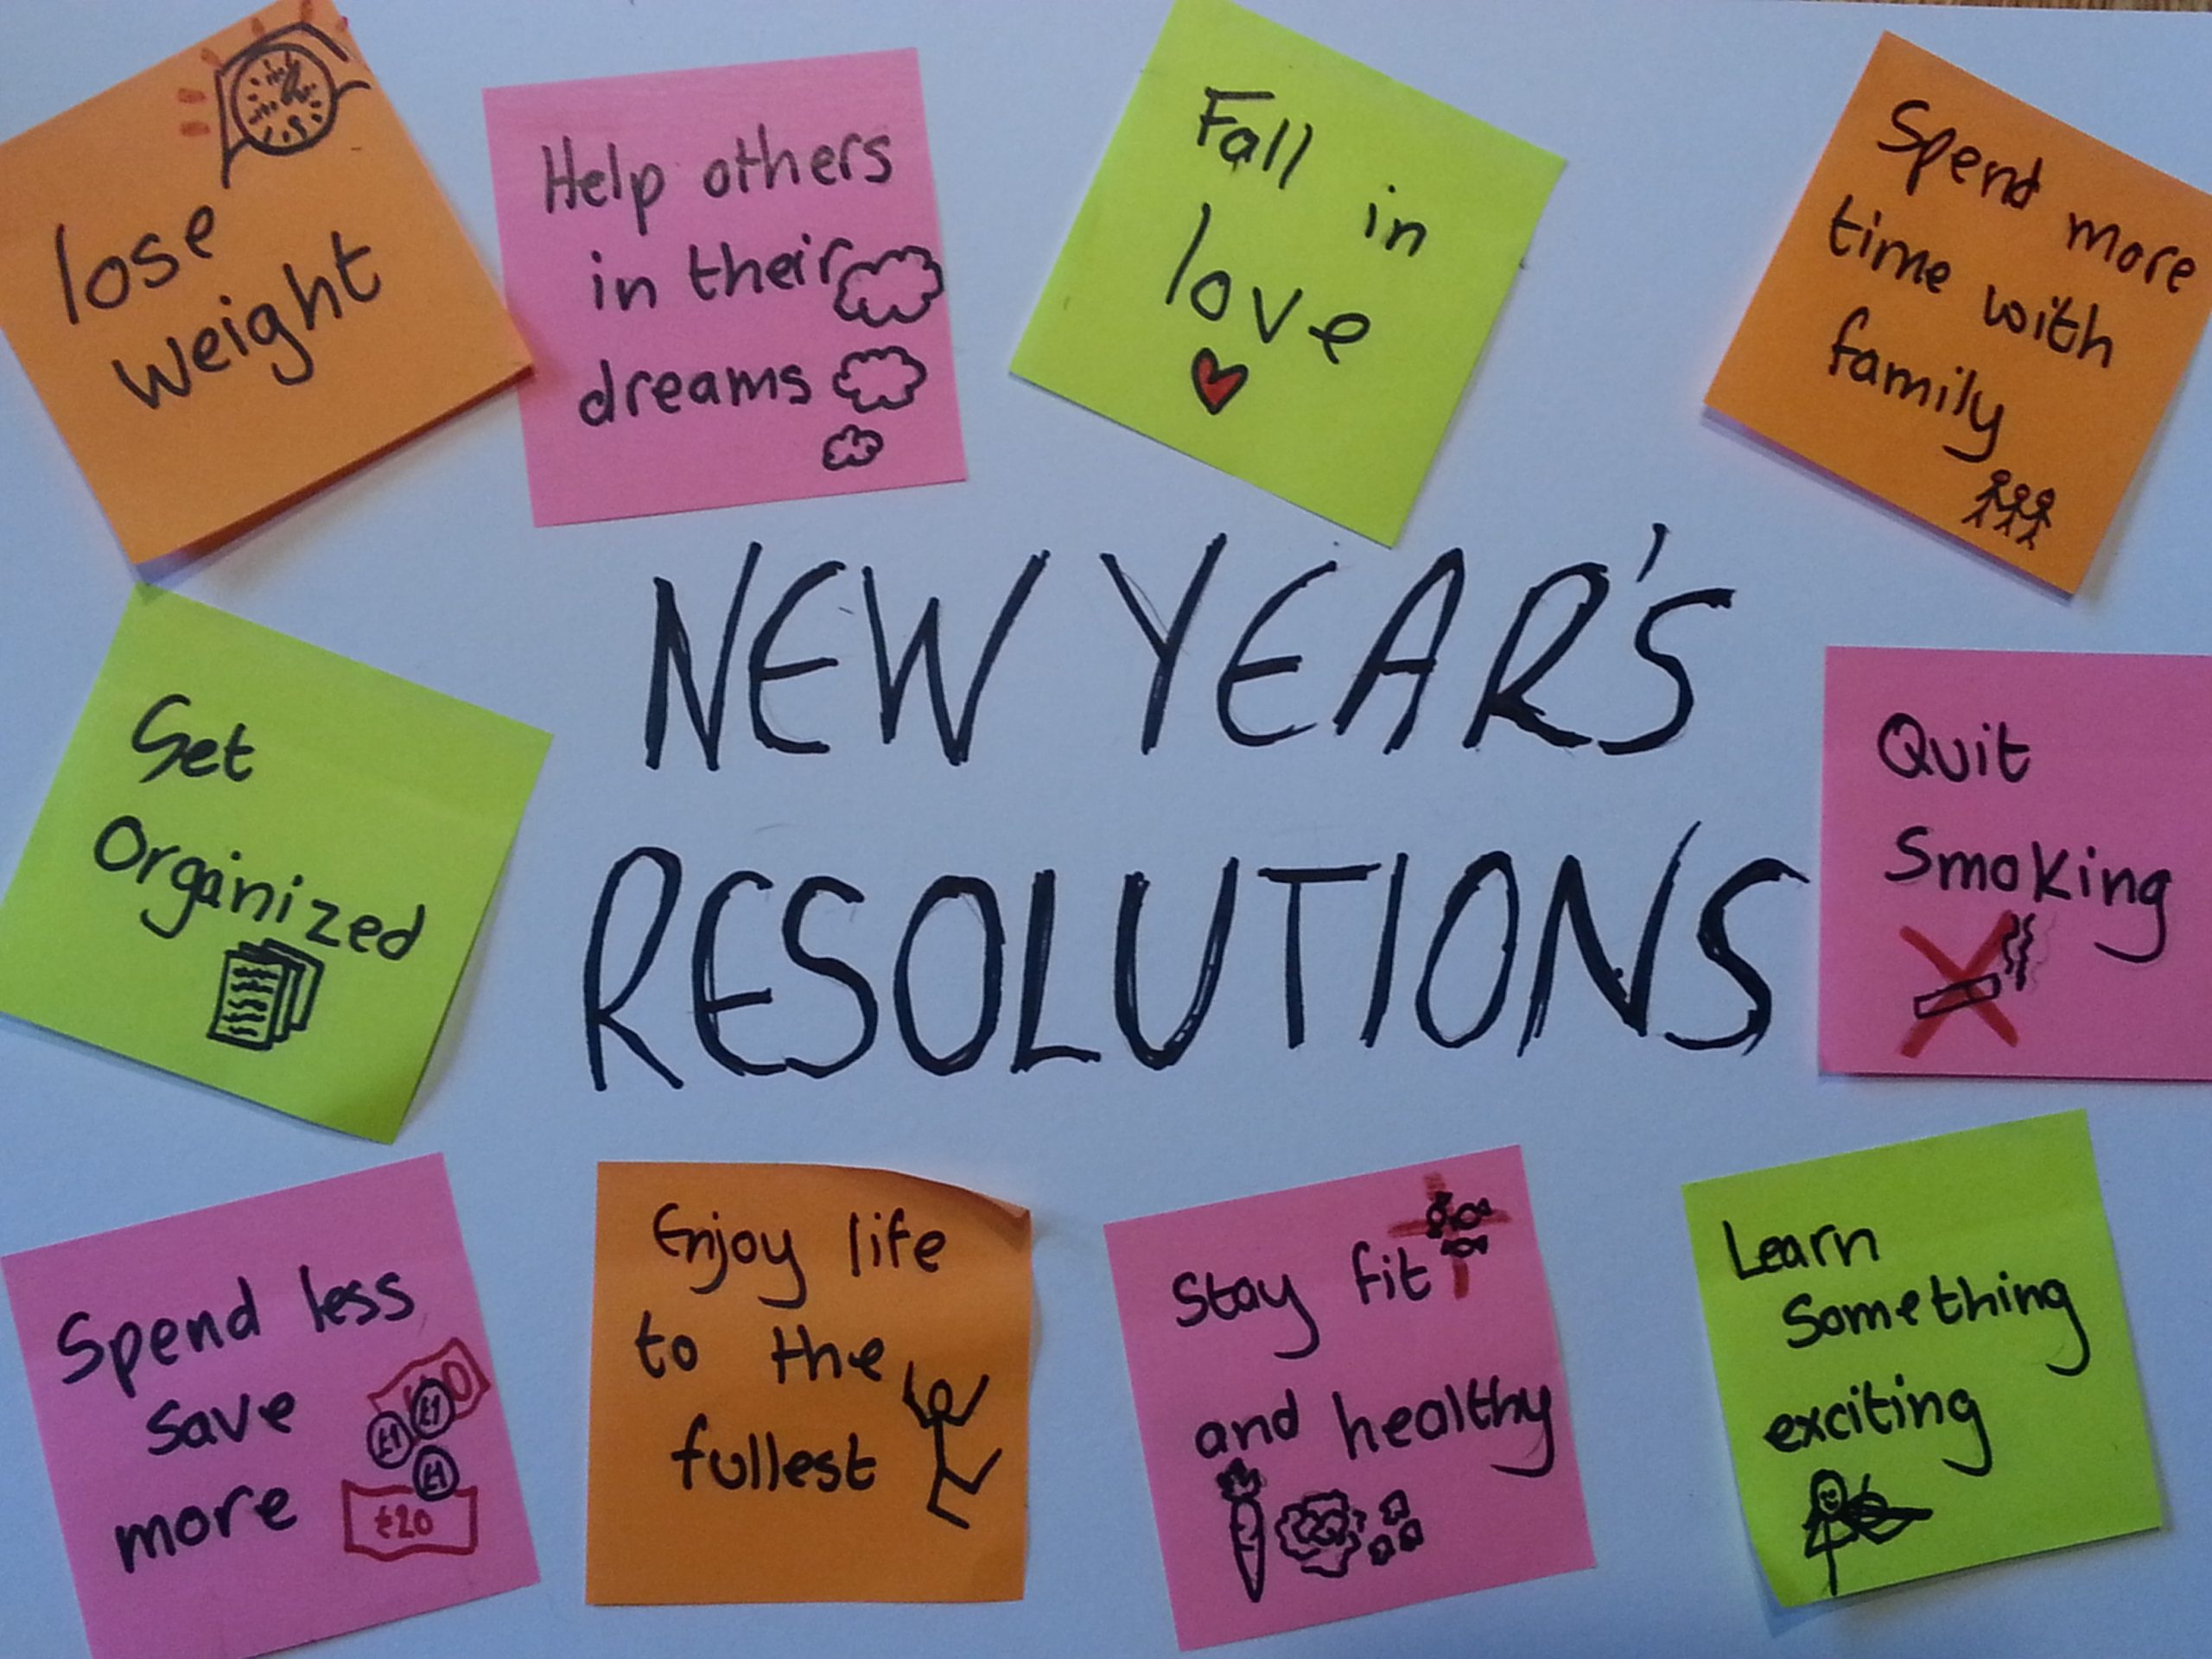 lose
weight
Help others
in their
dreams
Fall in
love
Spend more
time with
family
NEW YEAR'S
RESOLUTIONS
Get
Organized
Quit
Smoking
Spend less
save
more
£20
£1
£1
£1
Enjoy life
to the
fullest
Stay fit
and healthy
Learn
Something
exciting